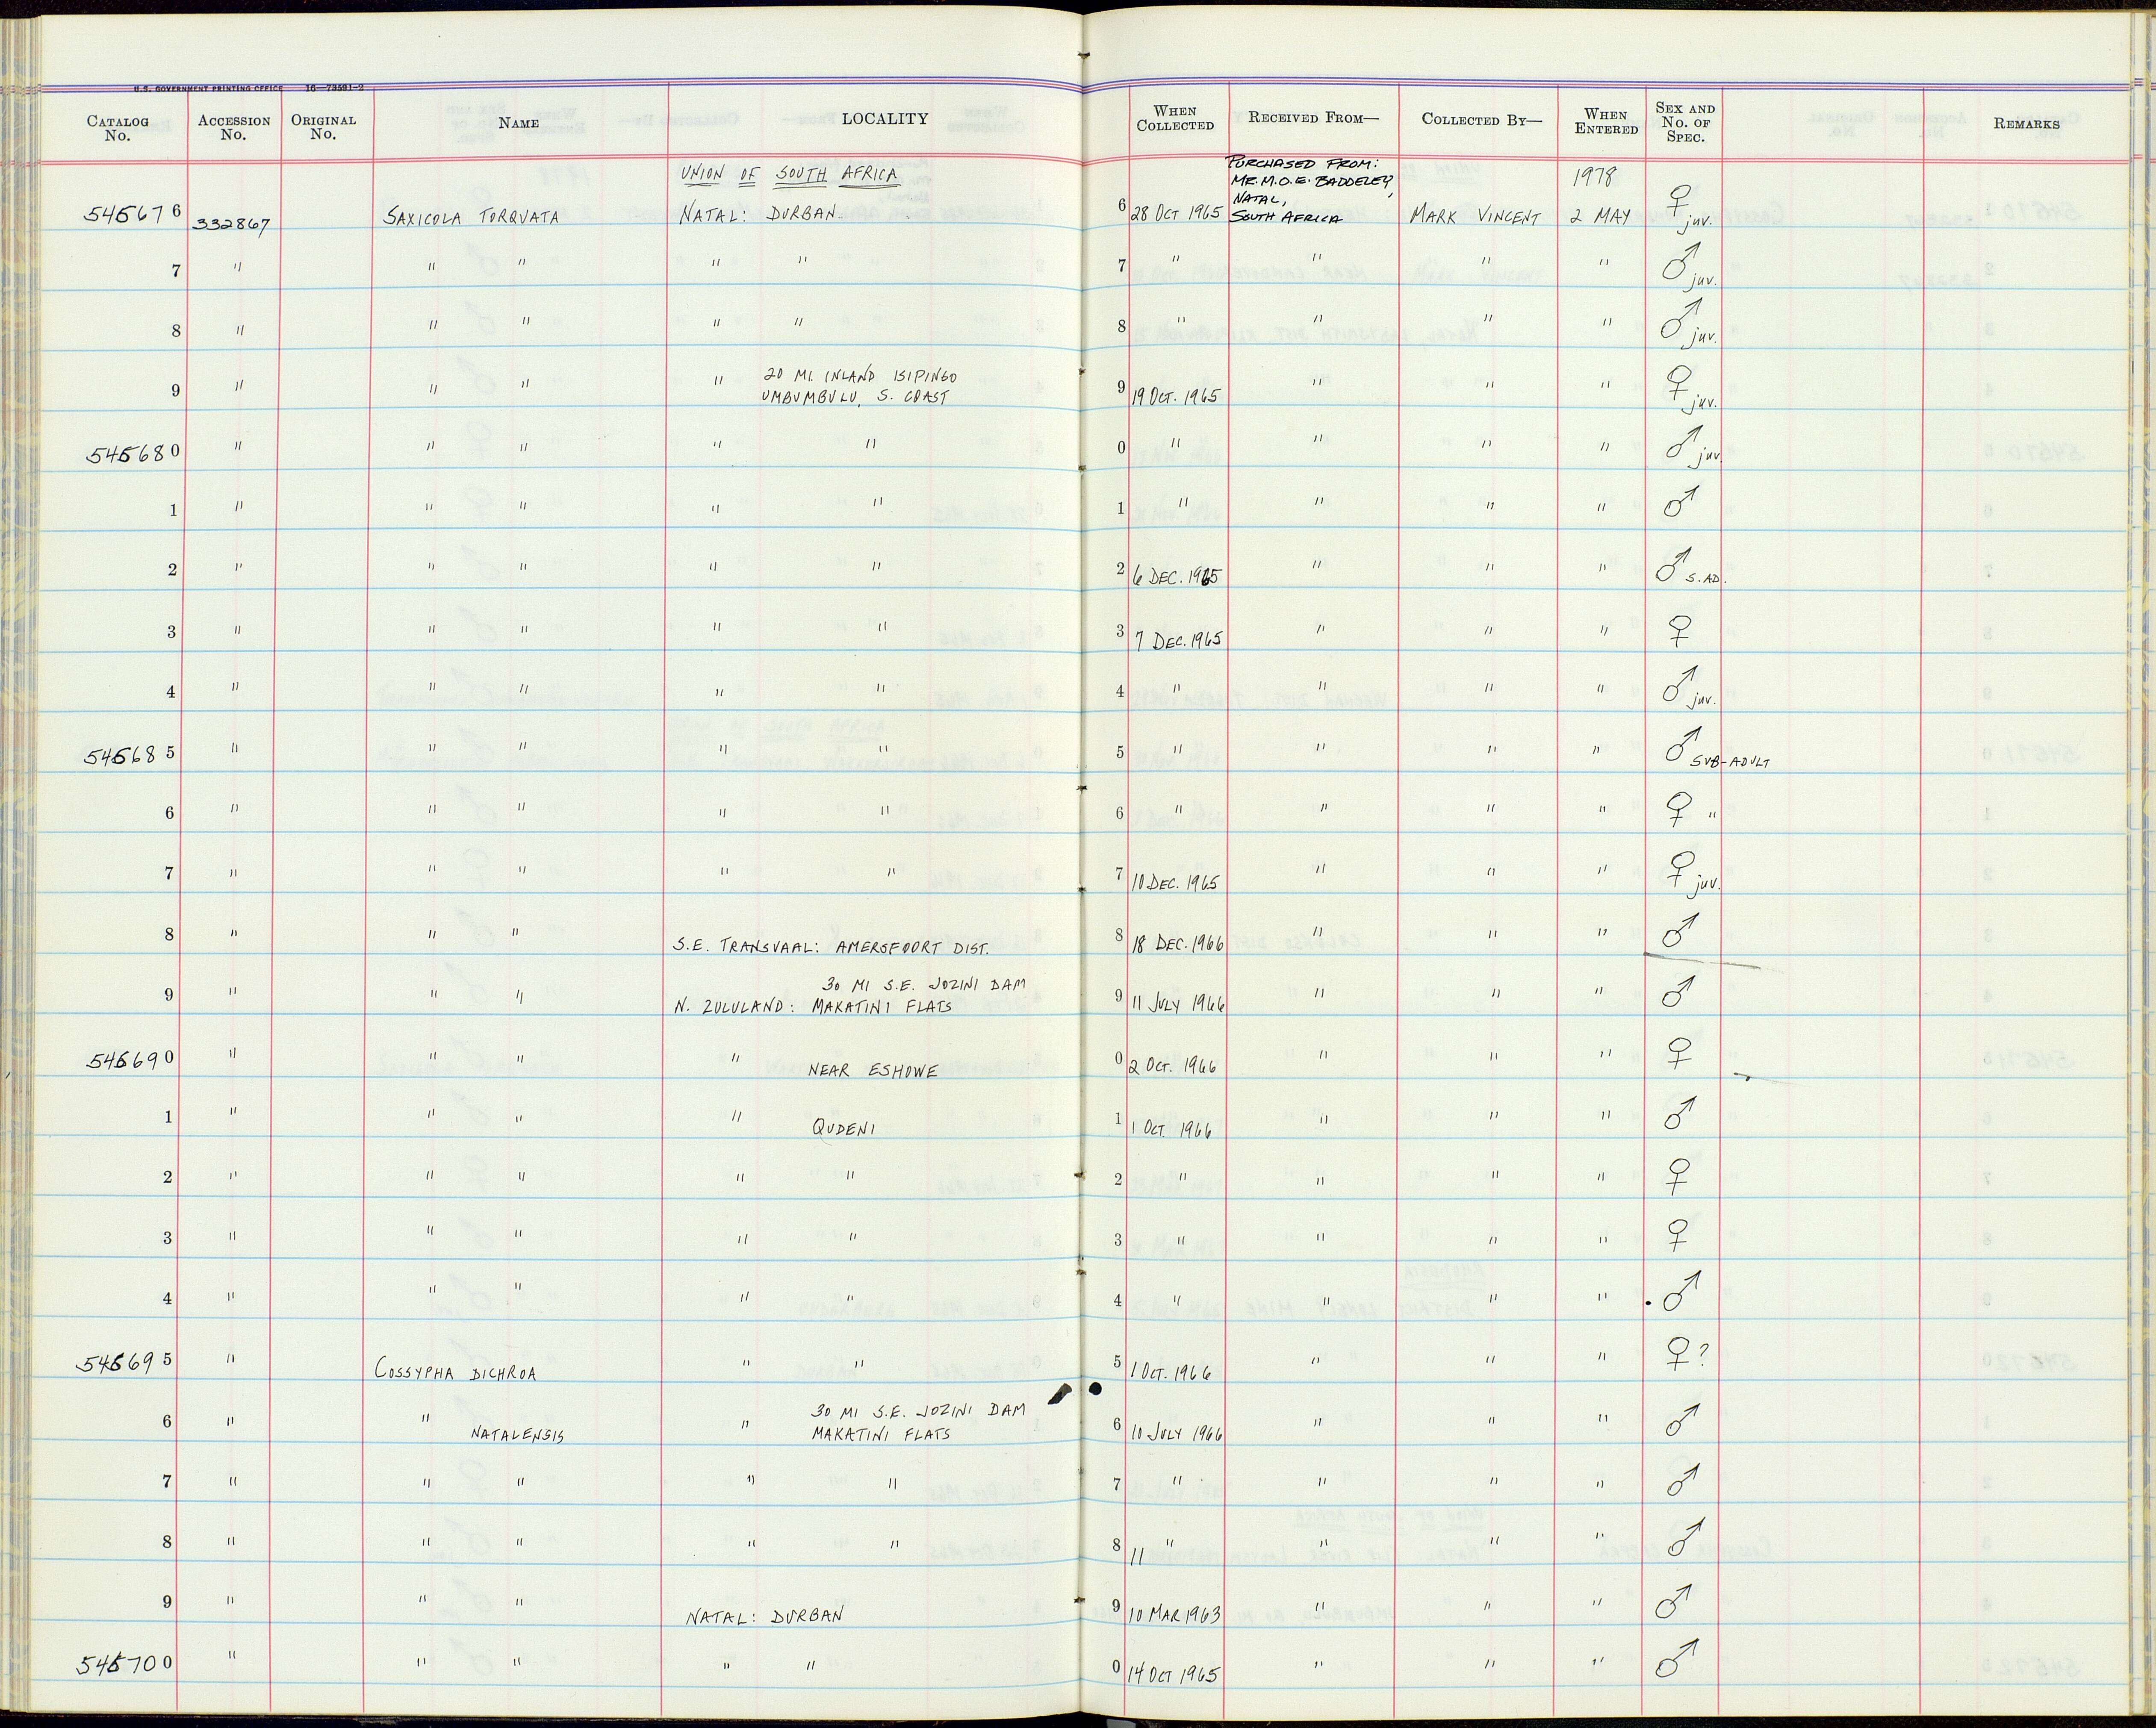 U.S. GOVERNMENT PRINTING OFFICE 16—73591-2
CATALOG No. ACCESSION No. ORIGINAL No. NAME LOCALITY WHEN COLLECTED RECEIVED FROM— COLLECTED BY— WHEN ENTERED SEX AND No. OF SPEC. REMARKS
UNION OF SOUTH AFRICA PURCHASED FROM: MR. M.O.E. BADDELEY, NATAL, SOUTH AFRICA 1978
545676 332867 SAXICOLA TORQUATA NATAL: DURBAN 6 28 OCT 1965 MARK VINCENT 2 MAY ♀ juv.
7 " " " " " 7 " " " " ♂ juv.
8 " " " " " 8 " " " " ♂ juv.
9 " " " " 20 MI. INLAND ISIPINGO UMBUMBULU, S. COAST 9 19 OCT. 1965 " " " ♀ juv.
545680 " " " " " 0 " " " " ♂ juv
1 " " " " " 1 " " " " ♂
2 " " " " " 2 6 DEC. 1965 " " " ♂ S.AD.
3 " " " " " 3 7 DEC. 1965 " " " ♀
4 " " " " " 4 " " " " ♂ juv.
545685 " " " " " 5 " " " " ♂ SUB-ADULT
6 " " " " " 6 " " " " ♀ "
7 " " " " " 7 10 DEC. 1965 " " " ♀ juv.
8 " " " S.E. TRANSVAAL: AMERSFOORT DIST. 8 18 DEC. 1966 " " " ♂
9 " " " N. ZULULAND: 30 MI S.E. JOZINI DAM MAKATINI FLATS 9 11 JULY 1966 " " " ♂
545690 " " " " NEAR ESHOWE 0 2 OCT. 1966 " " " ♀
1 " " " " QUDENI 1 1 OCT. 1966 " " " ♂
2 " " " " " 2 " " " " ♀
3 " " " " " 3 " " " " ♀
4 " " " " " 4 " " " " ♂
545695 " COSSYPHA DICHROA " " 5 1 OCT. 1966 " " " ♀?
6 " " NATALENSIS " 30 MI S.E. JOZINI DAM MAKATINI FLATS 6 10 JULY 1966 " " " ♂
7 " " " " " 7 " " " " ♂
8 " " " " " 8 11 " " " " ♂
9 " " " NATAL: DURBAN 9 10 MAR 1963 " " " ♂
545700 " " " " " 0 14 OCT 1965 " " " ♂